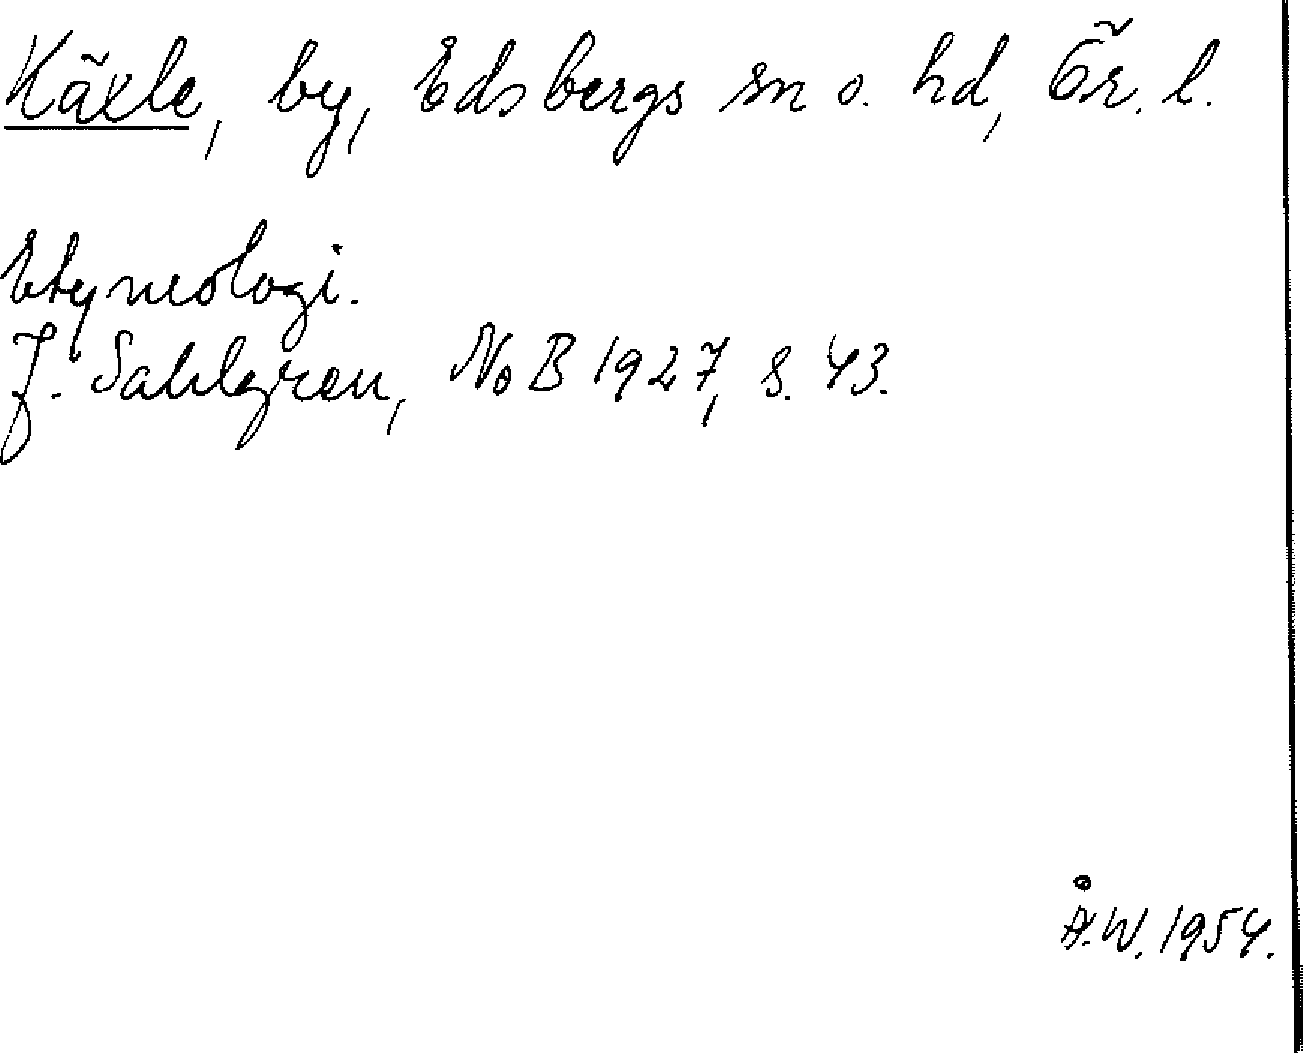 Käxle, by, Edsbergs sn o. hd, Ör. l.
Etymologi.
J. Sahlgren, NoB 1927, s. 43.
Å.W. 1954.